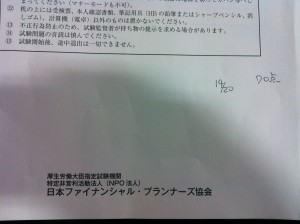 まってください（マナーモードも不可）。
⑫ 机の上には受検票、本人確認書類、筆記用具（HBの鉛筆またはシャープペンシル、消しゴム）、計算機（電卓）以外のものは置かないでください。
⑬ 不正行為防止のため、試験監督者が持ち物の提示を求める場合があります。
⑭ 試験問題の音読は慎んでください。
⑮ 試験開始後、途中退出は一切できません。
14/20 70点
厚生労働大臣指定試験機関
特定非営利活動法人（NPO法人）
日本ファイナンシャル・プランナーズ協会